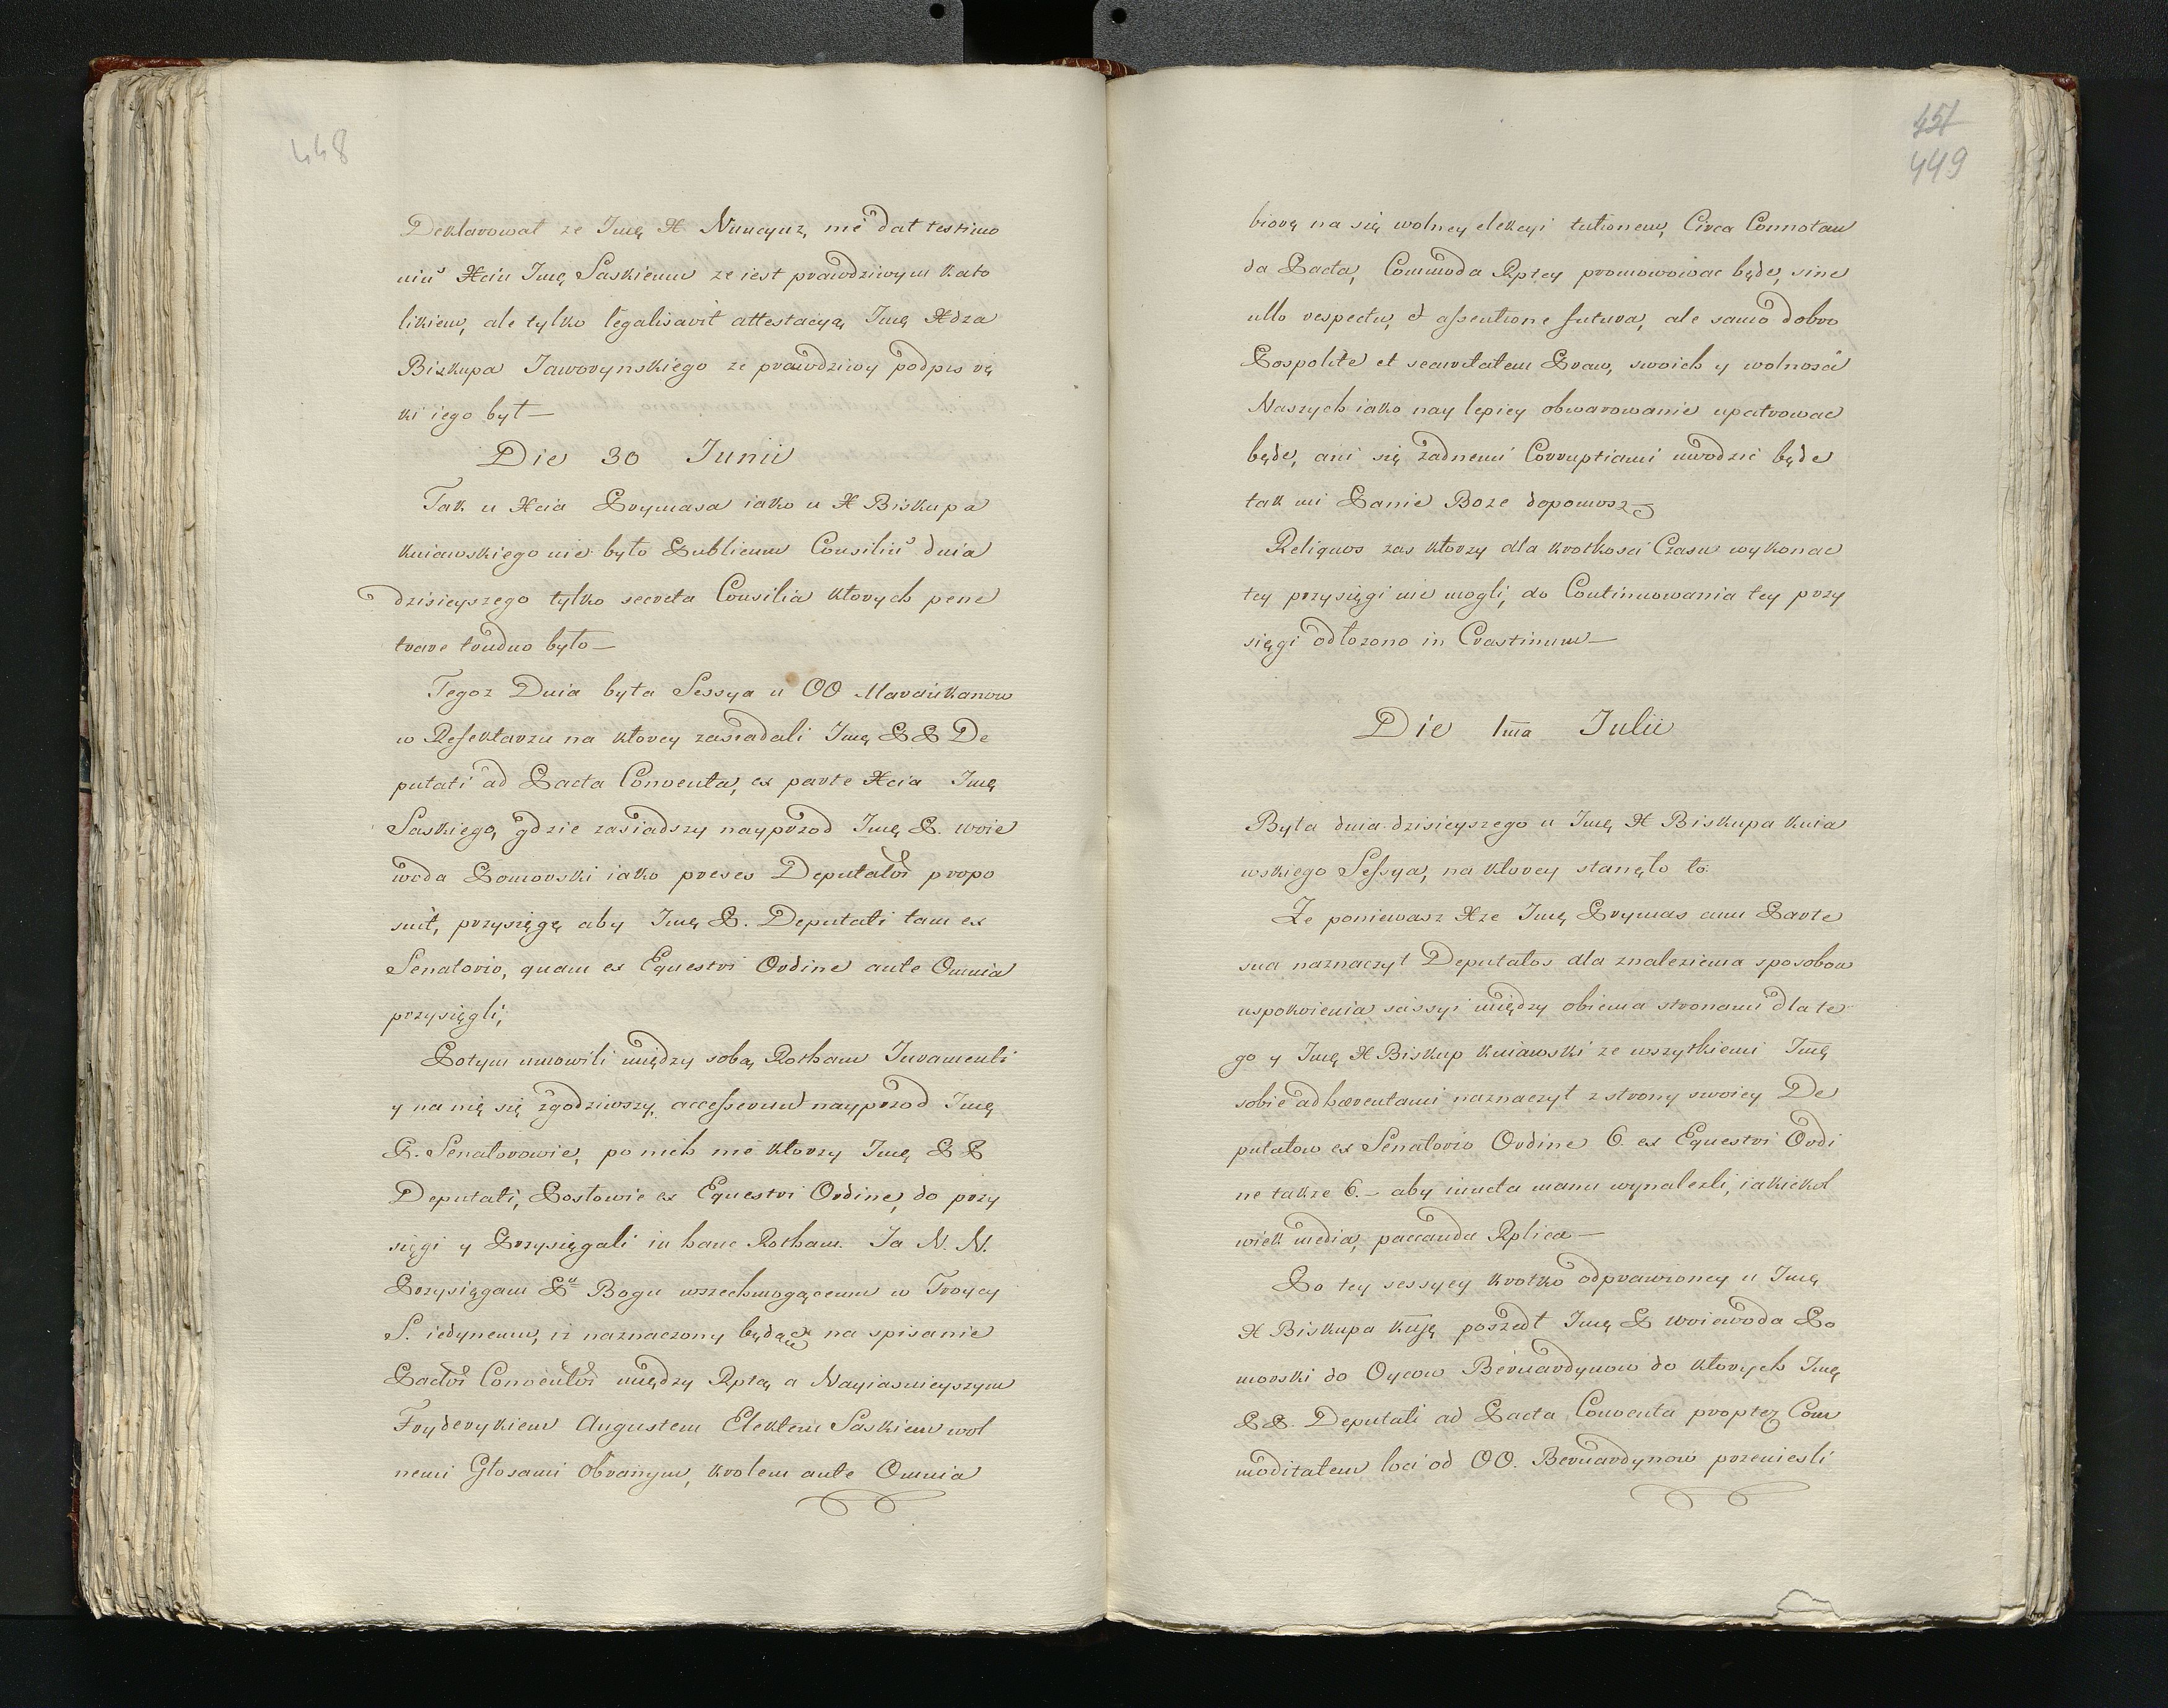 448
Deklarował ze Imę X. Nuncyusz, nie dał testimo
niũ Xciu Imę Saskiemu ze iest prawdziwym kato
likiem, ale tylko legalisavit attestacyą Imę Xdza
Biskupa Jaworynskiego ze prawdziwy podpis rę
ki iego był —
Die 30 Junii
Tak u Xcia Prymasa iako u X Biskupa
kuiawskiego nie było Publicum Consiliũ dnia
dzisieyszego tylko secreta Consilia ktorych pene
trare trudno było —
Tegoz Dnia była Sessya u OO
w Refektarzu na ktorey zasiadali Imę P P De
putati ad Pacta Conventa, ex parte Xcia Imę
Saskiego, gdzie zasiadszy nayprzod Imę P. woie
woda Pomorski iako preses Deputatoȓ propo
suit, przysięgę aby Imę P. Deputati tam ex
Senatorio, quam ex Equestri Ordine ante Omnia
przysięgli;
Potym umowili między sobą Rotham Juramenti
y na nię się zgodziwszy, accesserunt nayprzod Imę
P. Senatorowie, po nich nie ktorzy Imę P P
Deputati, Posłowie ex Equestri Ordine, do przy
sięgi y Przysięgali in hanc Rotham. Ja N. N.
Przysięgam Pu Bogu wszechmogącemu w Troycy
S. iedynemu, iz naznaczony będąc na spisanie
Pactoȓ Conventoȓ między Rptą a Nayiasnieyszym
Fryderykiem Augustem Elektem Saskiem wol
nemi Głosami obranym, krolem ante Omnia
451
449
biorę na się wolney elekcyi tutionem, Circa Connotan
da Pacta, Commoda Rptey promowowac będę, sine
ullo respectu, et assentione futura, ale samo dobro
Pospolite et securitatem Praw, swoich y wolnosci
Naszych iako nay lepiey obwarowanie upatrowac
będę, ani się żadnemi Corruptiami uwodzic będę
tak mi Panie Boze dopomosz
Reliquos zas ktorzy dla krotkosci Czasu wykonac
tey przysięgi nie mogli, do Continuowania tey przy
sięgi odłozono in Crastinum —
Die 1ma Julii
Była dnia dzisieyszego u Imę X Biskupa kuia
wskiego Sessya, na ktorey stanęło to.
Ze poniewasz Xze Imę Prymas cum Parte
sua naznaczył Deputatos dla znalezienia sposobow
uspokoienia scissyi między obiema stronami dla te
go y Imę X Biskup kuiawski ze wszytkiemi Imę
sobie adhaerentami naznaczył z strony swoiey De
putatow ex Senatorio Ordine 6. ex Equestri Ordi
ne takze 6. — aby iuncta manu wynalezli, iakiekol
wiek media, paccanda Rplica —
Po tey sessyey krotko odprawioney u Imę
X Biskupa kuję poszedł Imę P woiewoda Po
morski do Oycow Bernardynow do ktorych Imę
P P. Deputati ad Pacta Conventa propter Com
moditatem loci od OO. Bernardynow przeniesli